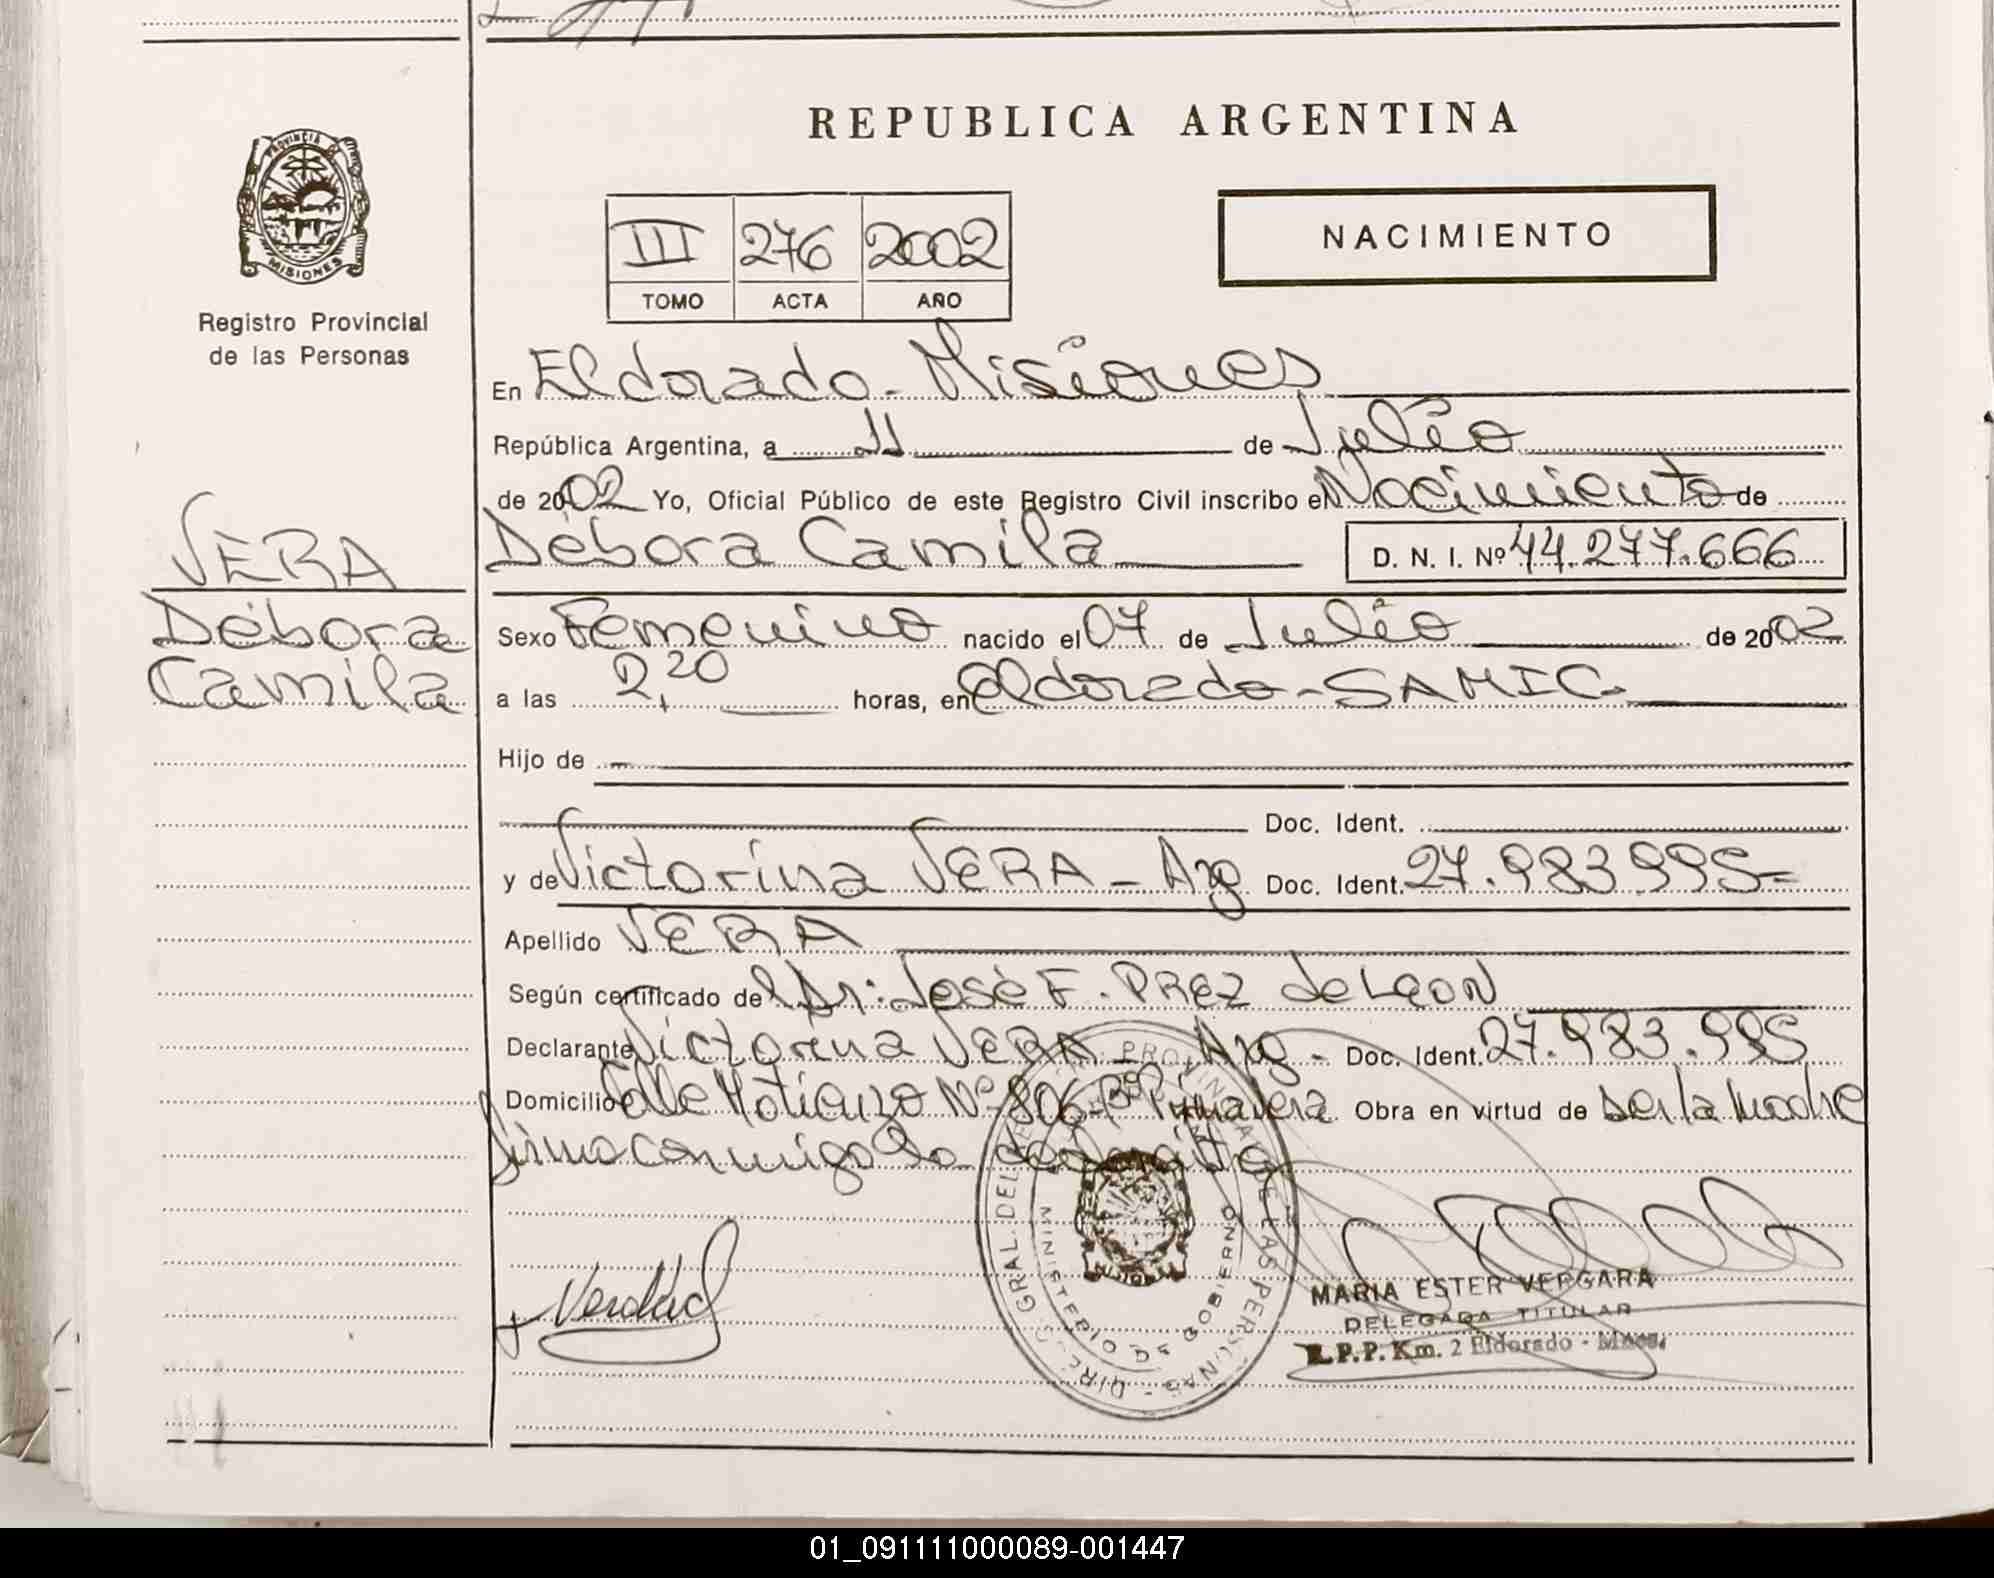 REPUBLICA ARGENTINA
PROVINCIA DE MISIONES
Registro Provincial
de las Personas
III 276 2002
TOMO ACTA AÑO
NACIMIENTO
En Eldorado - Misiones
República Argentina, a 11 de Julio
de 2002 Yo, Oficial Público de este Registro Civil inscribo el Nacimiento de
Débora Camila D. N. I. Nº 44.277.666
VERA
Débora
Camila
Sexo Femenino nacido el 07 de Julio de 2002
a las 2,20 horas, en Eldorado - SAMIC.
Hijo de
Doc. Ident.
y de Victorina VERA - Arg Doc. Ident. 27.983.995=
Apellido VERA
Según certificado del Dr: José F. PREZ de LEON
Declarante Victorina VERA - Arg - Doc. Ident. 27.983.995
Domicilio Calle Nº 806 Bº Primavera. Obra en virtud de ser la madre
firma conmigo la
Verdad
DIREC. GRAL. DEL REG. PROVINCIAL DE LAS PERSONAS - MINISTERIO DE GOBIERNO
MARIA ESTER VERGARA
DELEGADA TITULAR
R.P.P. Km. 2 Eldorado - Mnes.
01_091111000089-001447